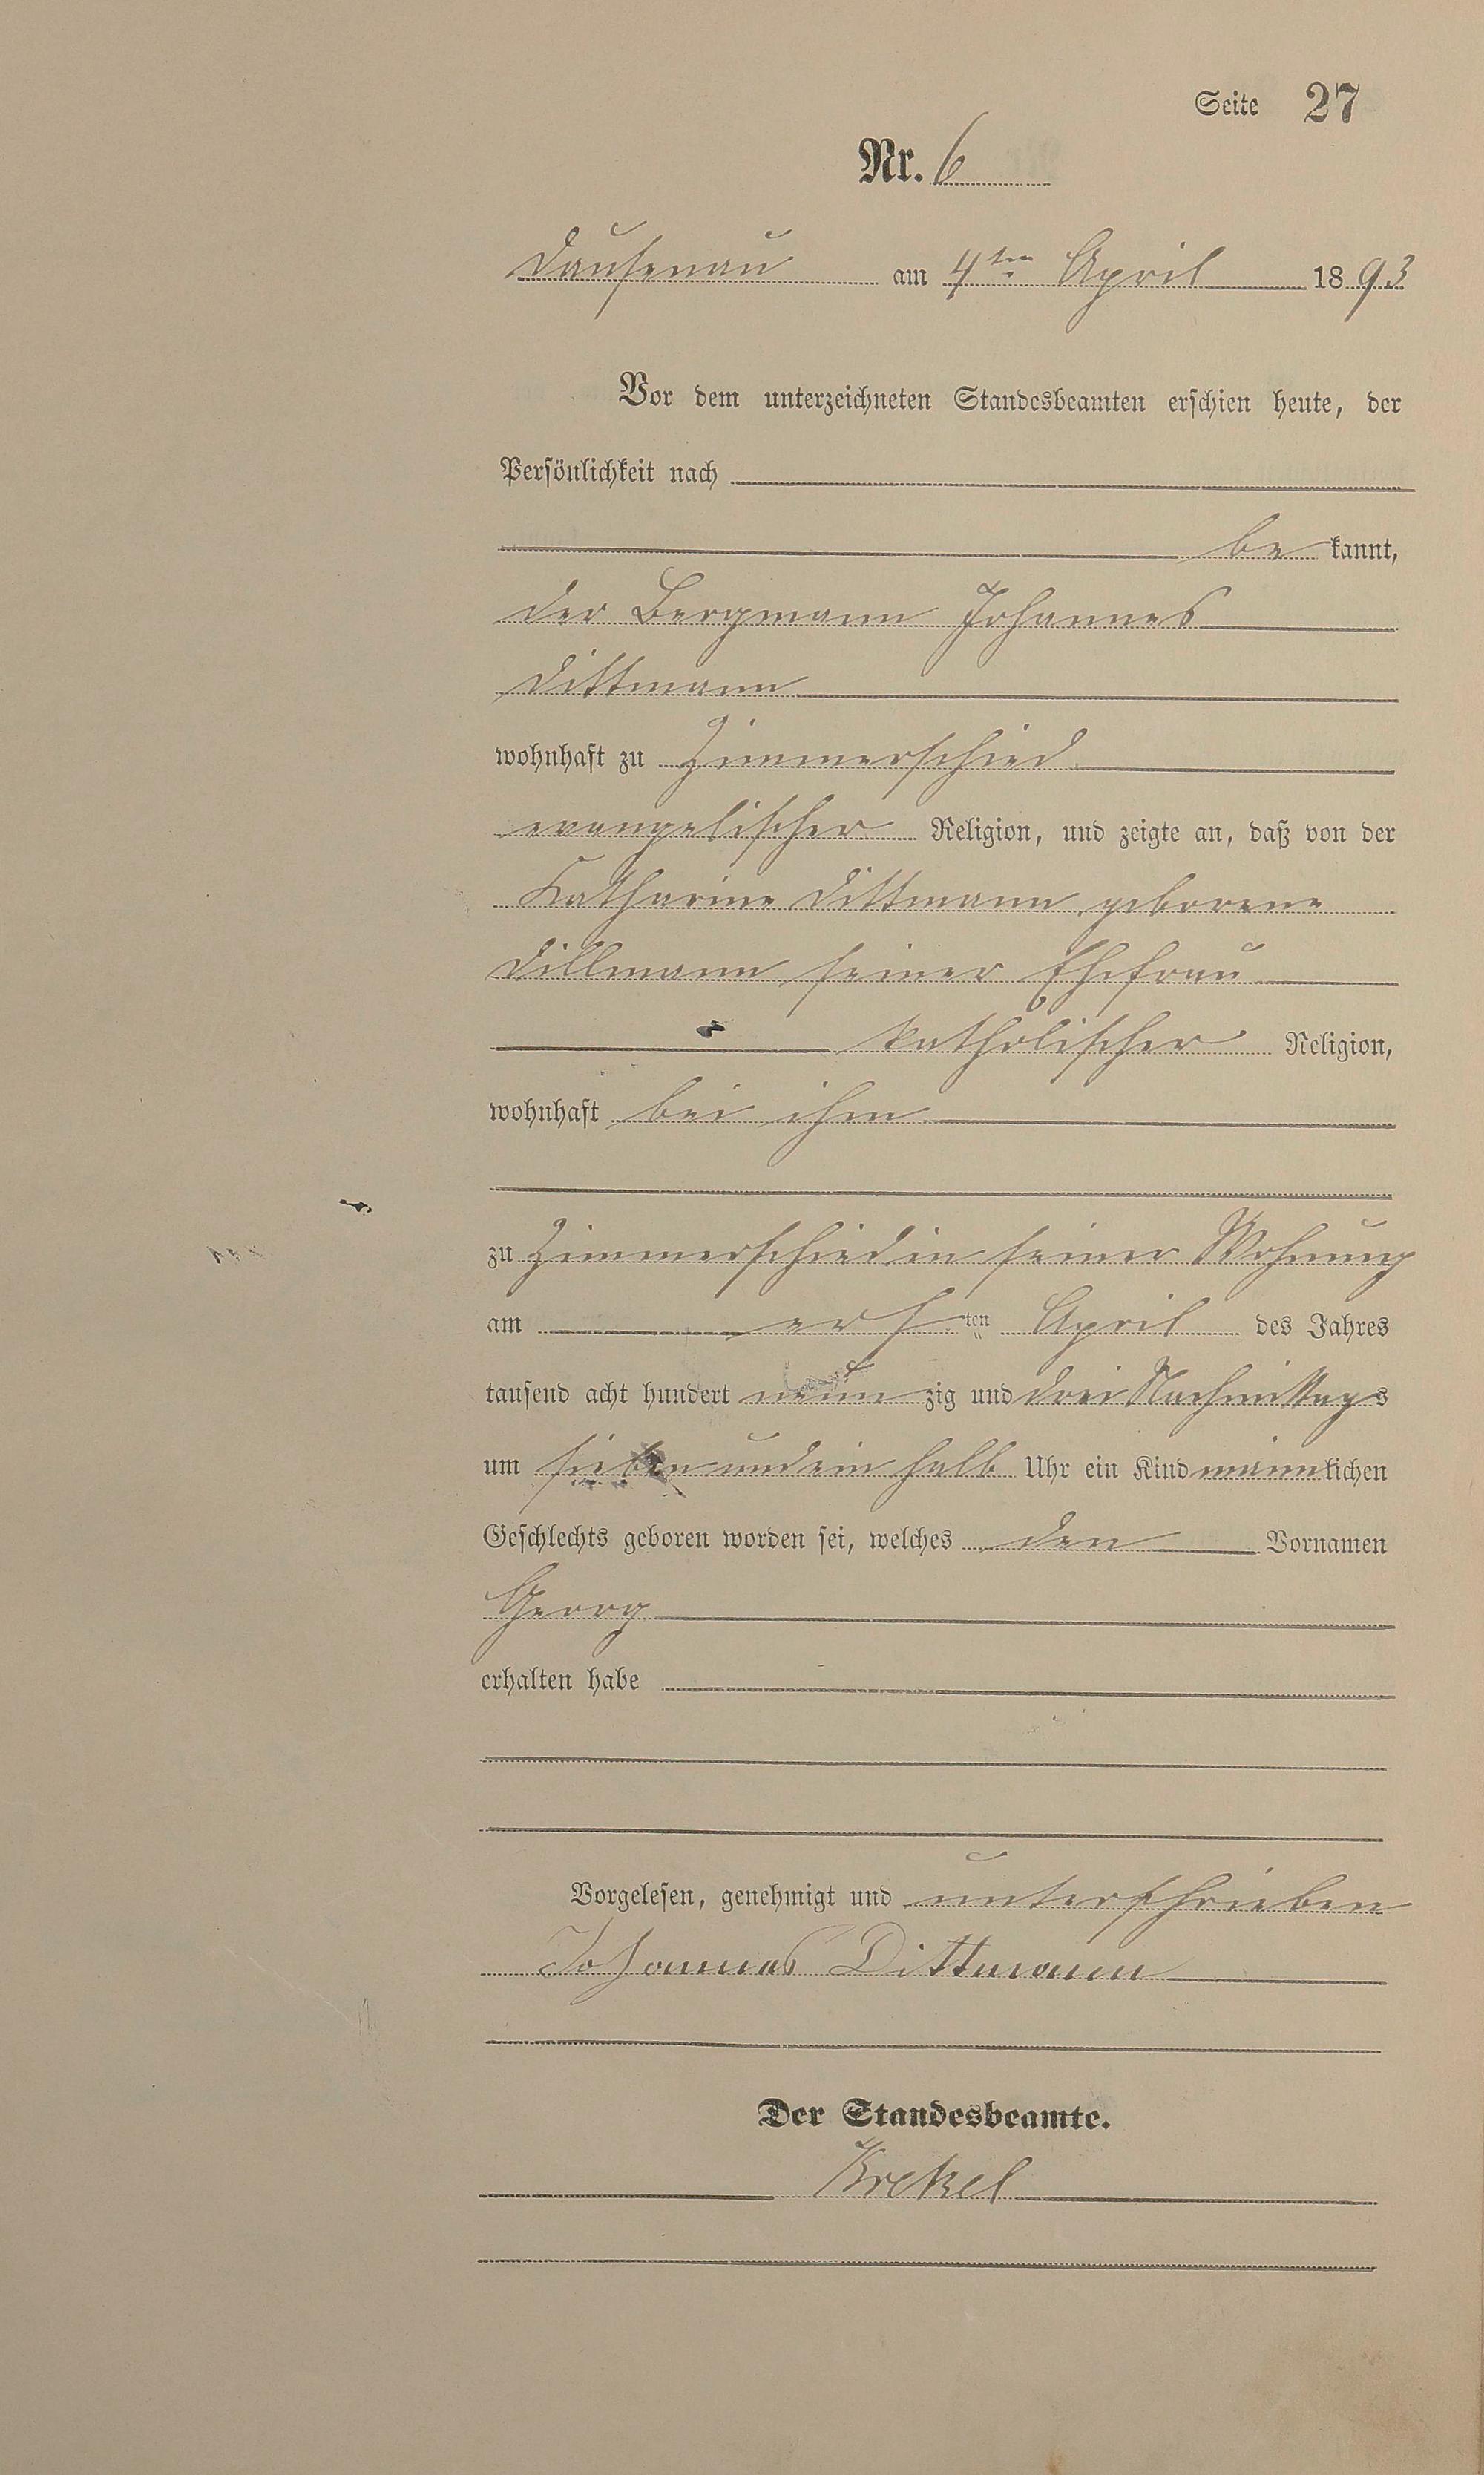 Seite 27
Nr. 6
Dausenau am 4ten April 1893
Vor dem unterzeichneten Standesbeamten erschien heute, der
Persönlichkeit nach
be kannt,
der Bergmann Johannes
Dittmann
wohnhaft zu Zimmerschied
evangelischer Religion, und zeigte an, daß von der
Katharine Dittmann, geborene
Dillmann seiner Ehefrau
katholischer Religion,
wohnhaft bei ihm
zu Zimmerschied in seiner Wohnung
am ersten April des Jahres
tausend acht hundert neun zig und drei Nachmittags
um sieben und ein halb Uhr ein Kind männlichen
Geschlechts geboren worden sei, welches den Vornamen
Georg
erhalten habe
Vorgelesen, genehmigt und unterschrieben
Johannes Dittmann
Der Standesbeamte.
Krekel